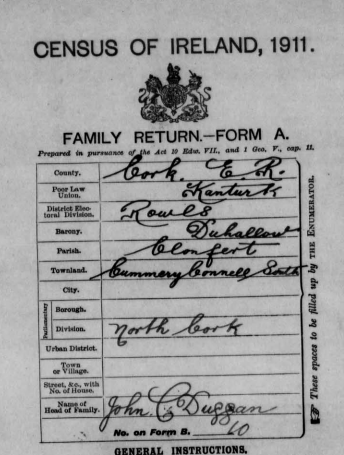 CENSUS OF IRELAND, 1911.
FAMILY RETURN.—FORM A.
Prepared in pursuance of the Act 10 Edw. VII., and 1 Geo. V., cap. 11.
County. Cork. E. R.
Poor Law Union. Kanturk
District Electoral Division. Rowls
Barony. Duhallow
Parish. Clonfert
Townland. Cummery Connell South
City.
Parliamentary
Borough.
Division. North Cork
Urban District.
Town or Village.
Street, &c., with No. of House.
Name of Head of Family. John C Duggan
No. on Form B. 10
These spaces to be filled up by the Enumerator.
GENERAL INSTRUCTIONS.